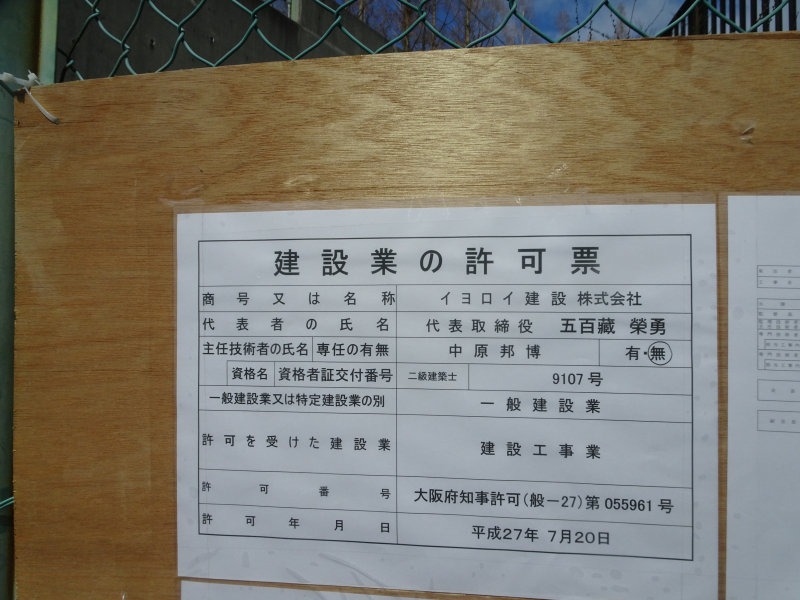 建設業の許可票
商号又は名称 イヨロイ建設 株式会社
代表者の氏名 代表取締役 五百藏 榮勇
主任技術者の氏名 専任の有無 中原邦博 有・無
資格名 資格者証交付番号 二級建築士 9107号
一般建設業又は特定建設業の別 一般建設業
許可を受けた建設業 建設工事業
許可番号 大阪府知事許可(般-27)第 055961 号
許可年月日 平成27年 7月20日